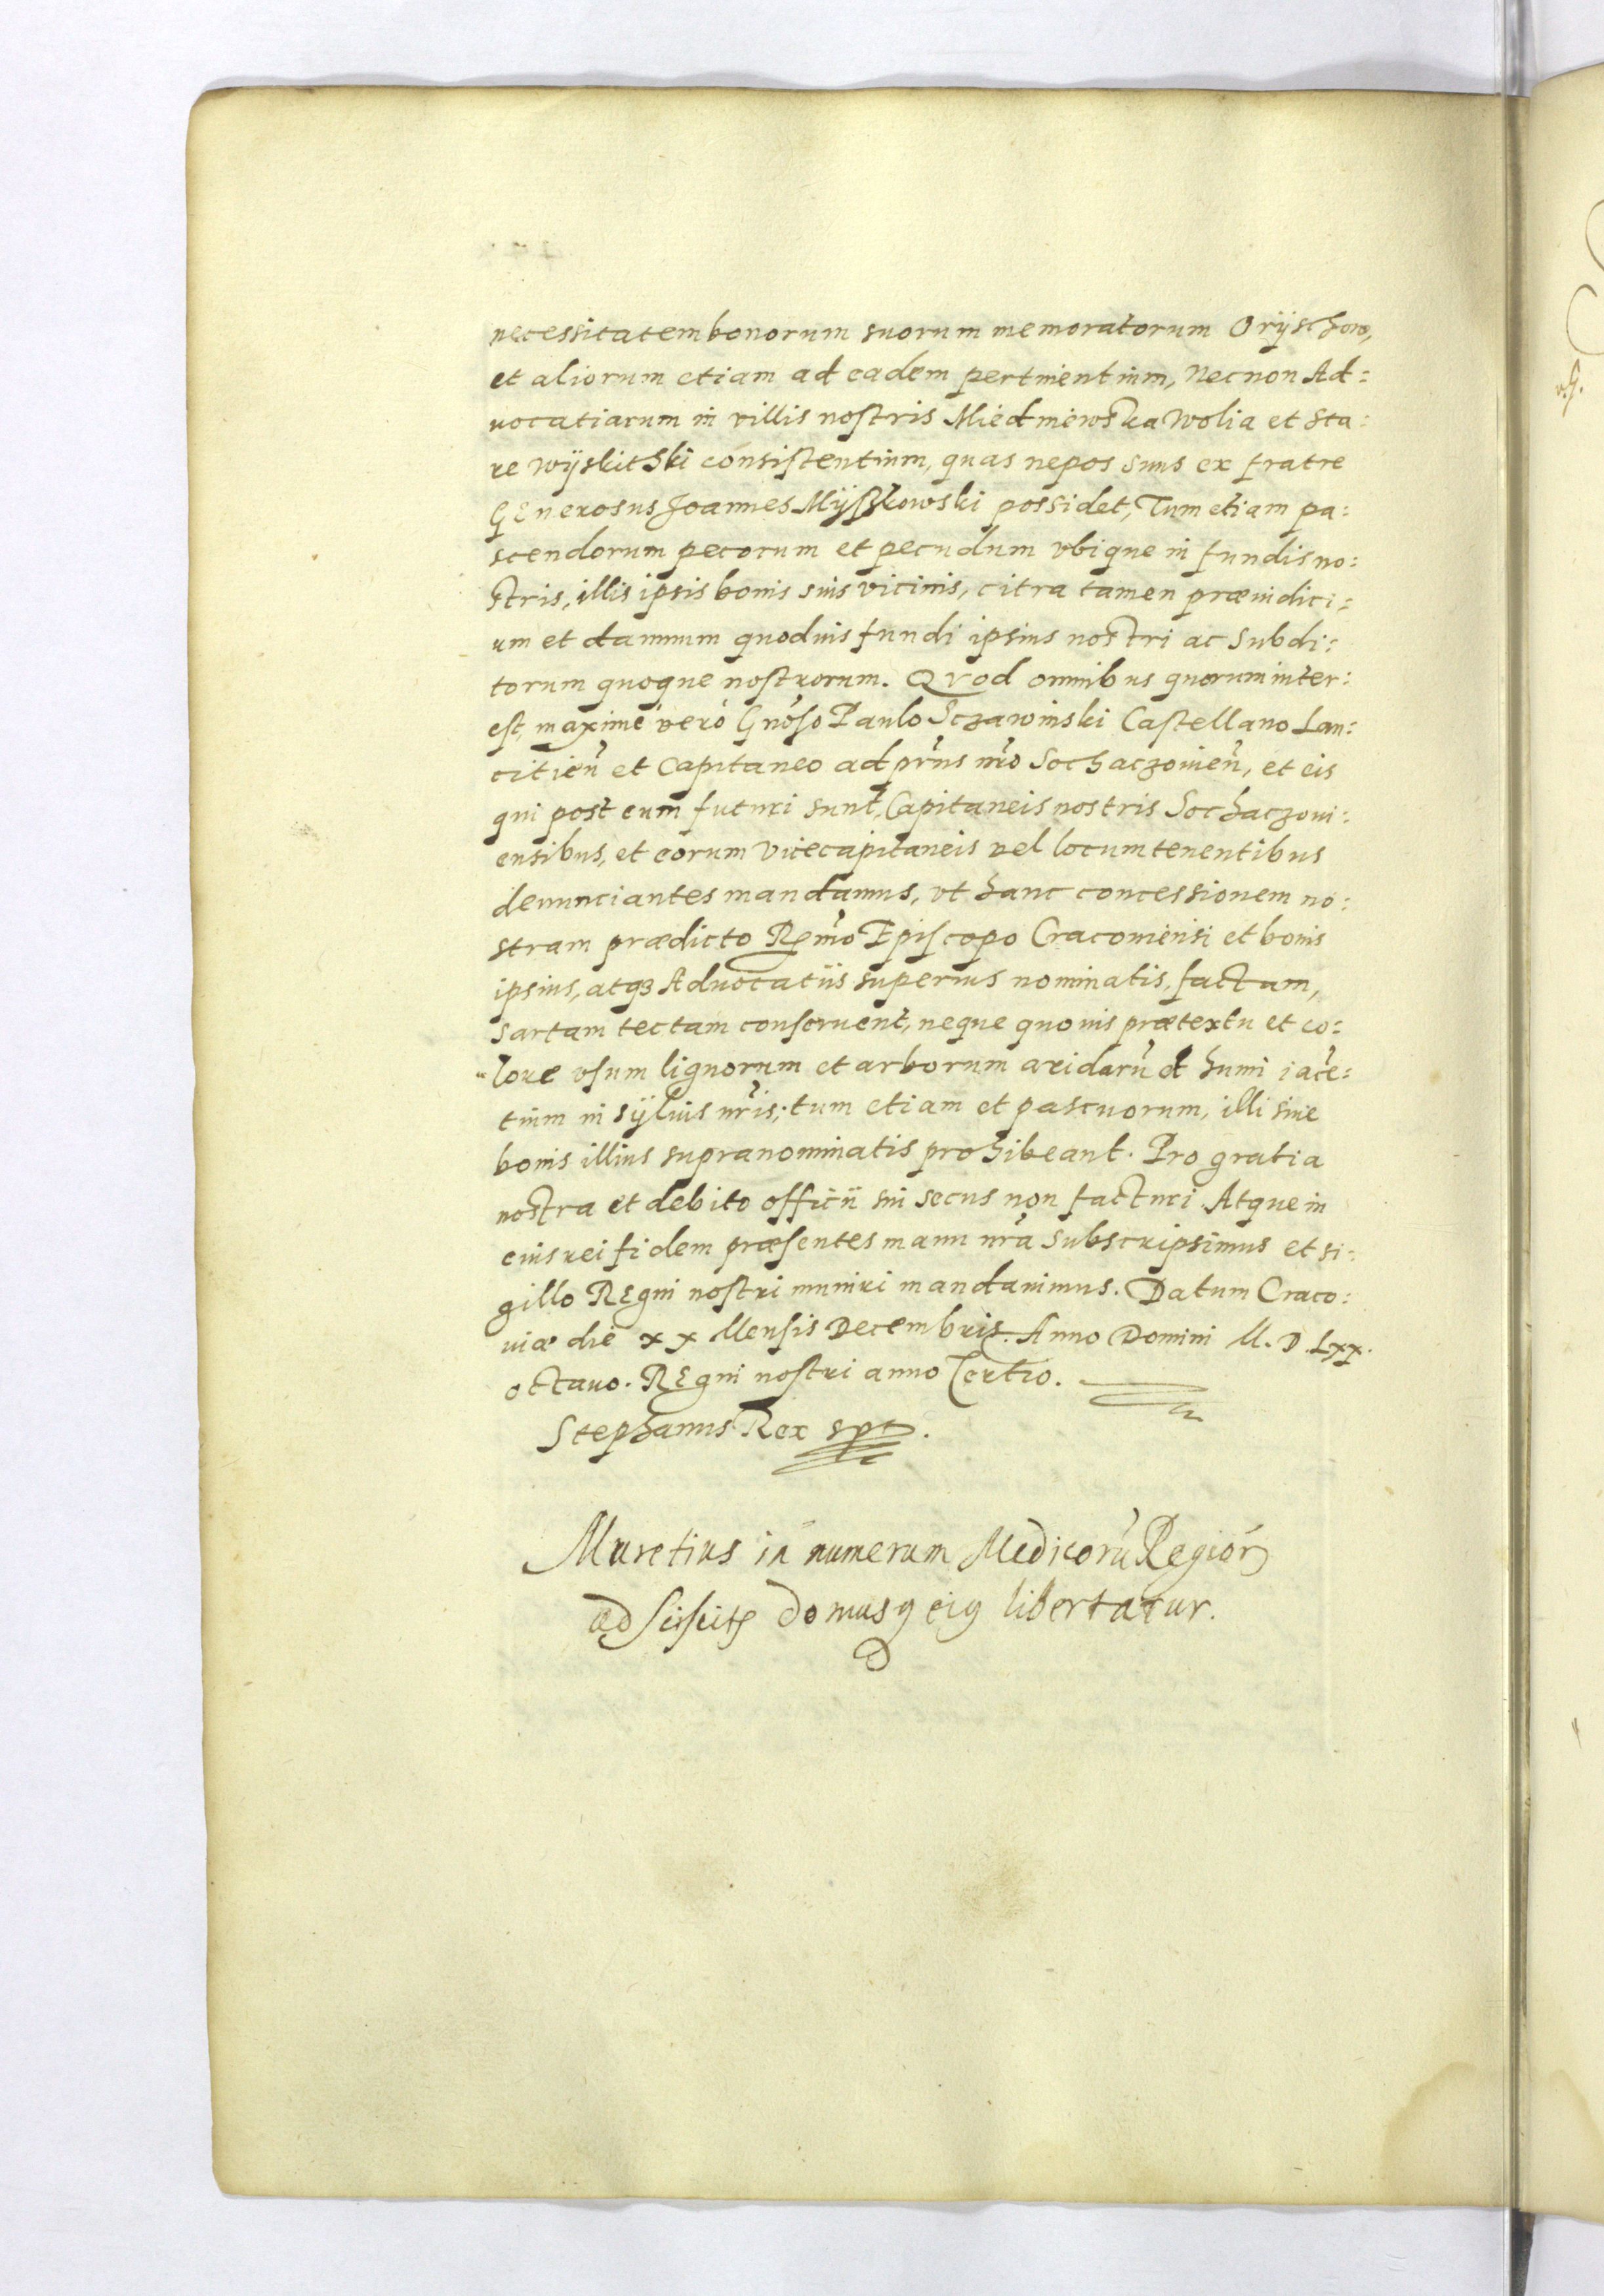 necessitatem bonorum suorum memoratorum Orÿschow,
et aliorum etiam ad eadem pertinentium, Necnon Ad:
uocatiarum in villis nostris Miedniewska Wolia et Sta:
re Wÿskithki consistentium, quas nepos suus ex fratre
Generosus Joannes Mÿsskowski possidet, Tum etiam pa:
scendorum pecorum et pecudum vbique in fundis no:
stris, illis ipsis bonis suis vicinis, citra tamen præiudici:
um et damnum quoduis fundi ipsius nostri ac Subdi:
torum quoque nostrorum. Quod omnibus quorum inter:
est, maxime vero Gnoso Paulo Sczawinski Castellano Lan:
citien̄ et Capitaneo ad prñs nrō Sochaczouien̄, et eis
qui post eum futuri sunt, Capitaneis nostris Sochaczoui:
ensibus, et eorum Vicecapitaneis vel locumtenentibus
denunciantes mandamus, vt hanc concessionem no:
stram prædicto Rēmo Episcopo Cracouiensi et bonis
ipsius, atqꝫ Aduocatiis superius nominatis, factam,
sartam tectam conseruent, neque quouis prætextu et co:
lore vsum lignorum et arborum aridarū et humi iacē:
tium in sÿluis nrīs; tum etiam et pascuorum, illi siue
bonis illius supranominatis prohibeant. Pro gratia
nostra et debito officii sui secus non facturi. Atque in
eius rei fidem præsentes manu nrā Subscripsimus et si:
gillo Regni nostri muniri mandauimus. Datum Craco:
uiæ die xx Mensis Decembris. Anno Domini M.D.Lxx.
octauo. Regni nostri anno Tertio.
Stephanus Rex sst.
Muretius in numerum Medicorū Regiorꝫ
adsciscitr domusqꝫ eiꝰ libertatur.